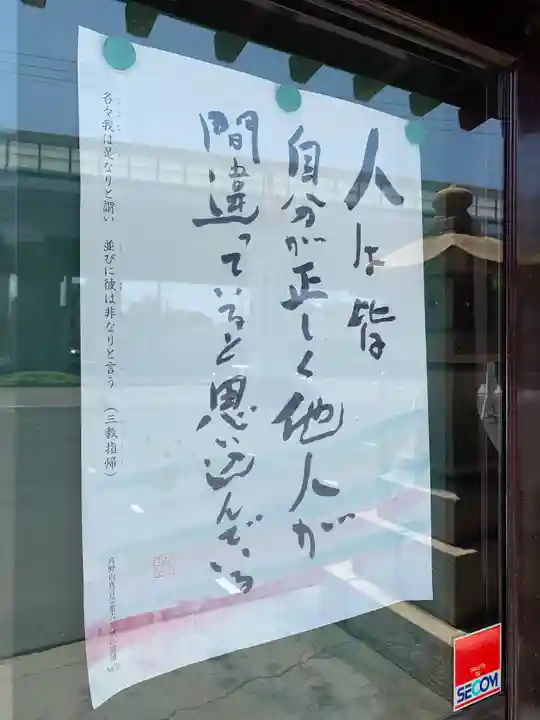 人は皆
自分が正しく他人が
間違っていると思い込んでいる
各々我は是なりと謂い　並びに彼は非なりと言う　（三教指帰）
Security by
SECOM